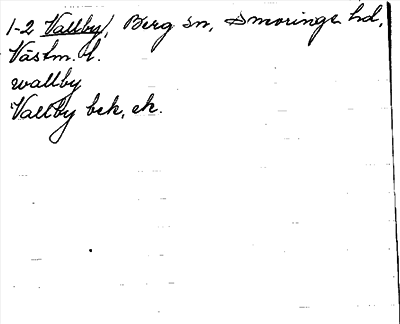 1-2 Vallby, Berg sn, Snevringe hd,
Västm. l.
wallby
Vallby bek, ek.